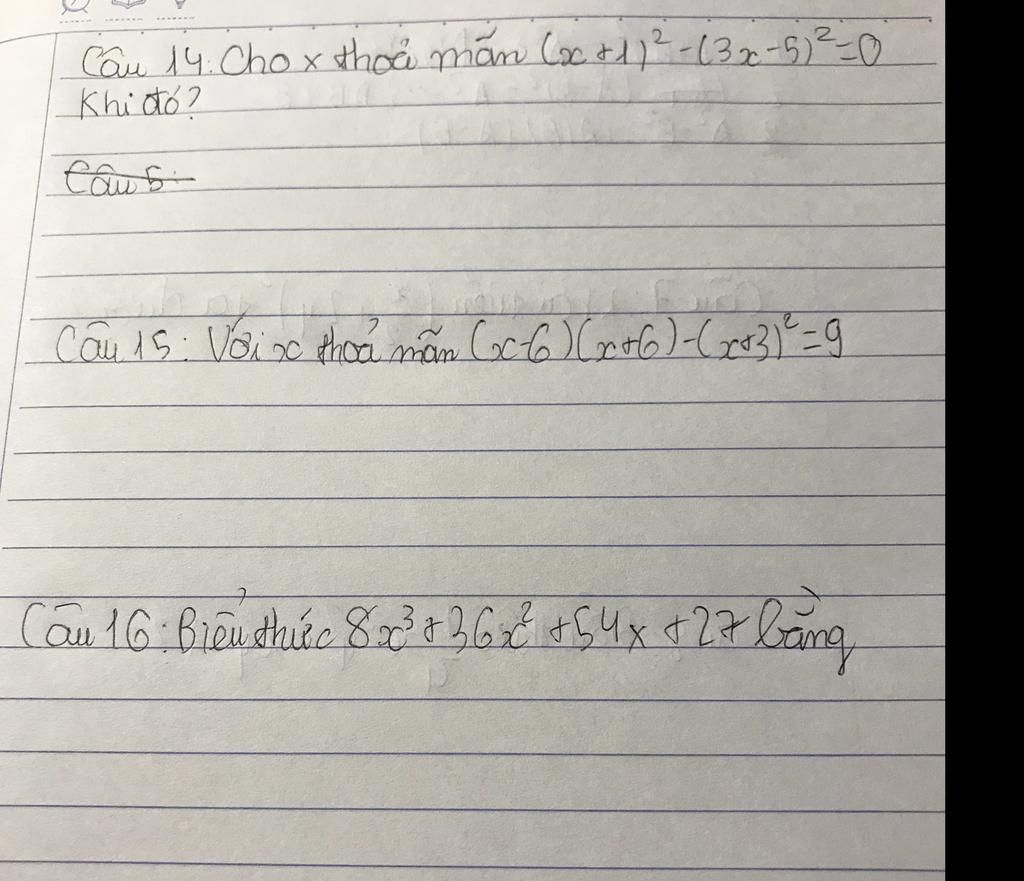 Câu 14: Cho x thoả mãn (x+1)²-(3x-5)²=0
Khi đó?
Câu 5:
Câu 15: Với x thoả mãn (x-6)(x+6)-(x+3)²=9
Câu 16: Biểu thức 8x³+36x²+54x+27 bằng